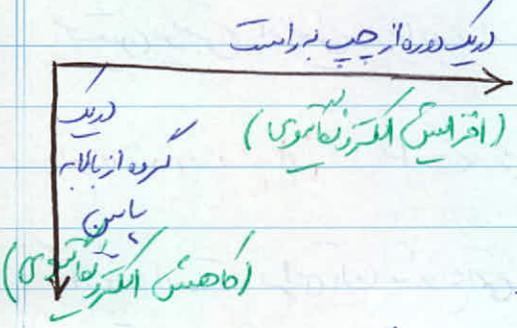 در یک دوره از چپ به راست
(افزایش الکترونگاتیوی)
در یک
گروه از بالا به
پایین
(کاهش الکترونگاتیوی)